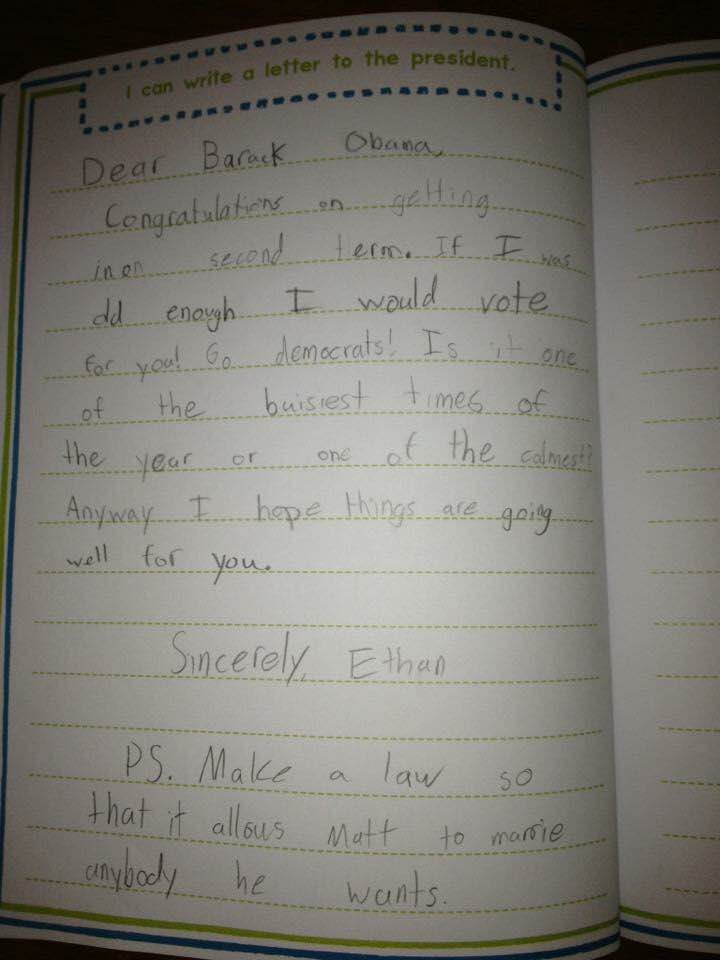 I can write a letter to the president.
Dear Barack Obama,
Congratulations on getting
in on second term. If I was
old enough I would vote
for you! Go democrats! Is it one
of the buisiest times of
the year or one of the calmest?
Anyway I hope things are going
well for you.
Sincerely, Ethan
PS. Make a law so
that it allows Matt to marrie
anybody he wants.